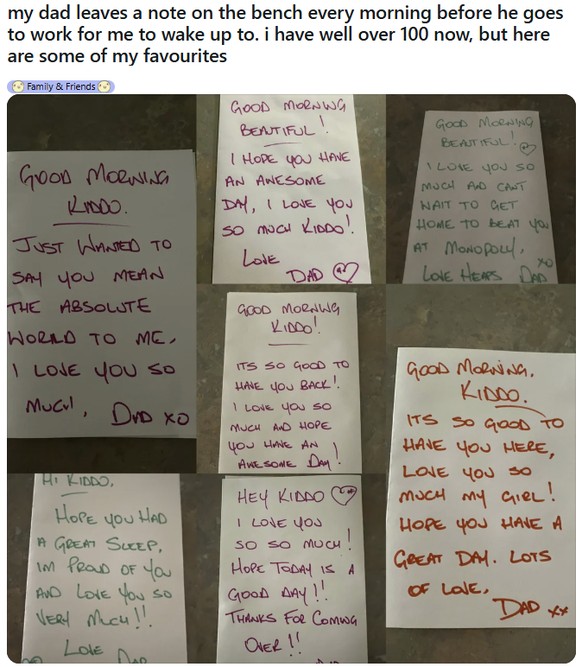 my dad leaves a note on the bench every morning before he goes
to work for me to wake up to. i have well over 100 now, but here
are some of my favourites
Family & Friends
GOOD MORNING
KIDDO.
JUST WANTED TO
SAY YOU MEAN
THE ABSOLUTE
WORLD TO ME,
I LOVE YOU SO
MUCH, DAD XO
GOOD MORNING
BEAUTIFUL!
I HOPE YOU HAVE
AN AWESOME
DAY, I LOVE YOU
SO MUCH KIDDO!
LOVE
DAD
GOOD MORNING
BEAUTIFUL!
I LOVE YOU SO
MUCH AND CANT
WAIT TO GET
HOME TO BEAT YOU
AT MONOPOLY,
XO
LOVE HEAPS DAD
GOOD MORNING
KIDDO!
ITS SO GOOD TO
HAVE YOU BACK!
I LOVE YOU SO
MUCH AND HOPE
YOU HAVE AN
AWESOME DAY!
GOOD MORNING,
KIDDO.
ITS SO GOOD TO
HAVE YOU HERE,
LOVE YOU SO
MUCH MY GIRL!
HOPE YOU HAVE A
GREAT DAY. LOTS
OF LOVE,
DAD XX
HI KIDDO,
HOPE YOU HAD
A GREAT SLEEP,
IM PROUD OF YOU
AND LOVE YOU SO
VERY MUCH!!
LOVE
DAD
HEY KIDDO
I LOVE YOU
SO SO MUCH!
HOPE TODAY IS A
GOOD DAY!!
THANKS FOR COMING
OVER!!